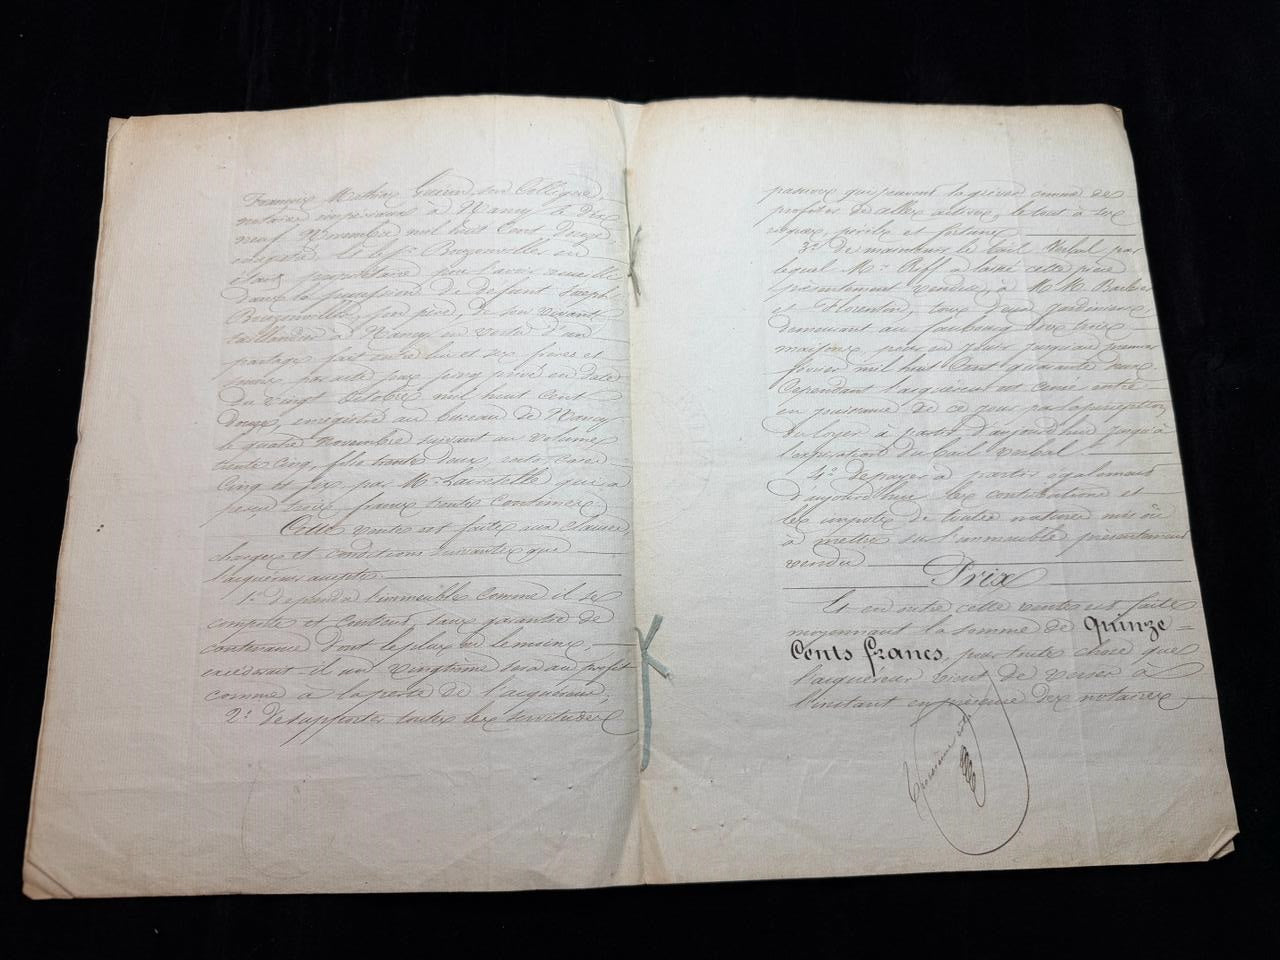 François Mathieu Guerin son Collègue,
notaires impériaux à Nancy le dix
neuf Novembre mil huit Cent douze,
enregistré, le Sr. Bouzonvillex en
était propriétaire pour l'avoir recueilli
dans la succession de defunt Joseph
Bouzonvillex, son père, de son vivant
taillandier à Nancy en vertu d'un
partage fait entre lui et ses frères et
sœurs, par acte sous seing privé en date
du vingt Octobre mil huit Cent
douze, enregistré au bureau de Nancy
le quatre Novembre suivant au volume
trente Cinq, folio trente deux, recto Cases
Cinq et six, par Mr. qui a
perçu trois francs trente Centimes
Cette vente est faite aux clauses,
charges et conditions suivantes que
l'acquéreur accepte.
1° de prendre l'immeuble comme il se
comporte et contient, sans garantie de
contenance dont le plus ou le moins,
excederait-il un vingtième sera au profit
comme à la perte de l'acquéreur.
2° de supporter toutes les servitudes
passives qui peuvent le gréver comme de
profiter de celles actives, le tout à ses
risques, périls et fortune
3° de maintenir le bail Verbal par
lequel Mr. Riff a laissé cette pièce
présentement vendue, à M.M. Barbier
et Florentin, tous deux jardiniers,
demeurant au faubourg des trois
maisons, pour en jouir jusqu'au premier
février mil huit Cent quarante deux.
Cependant l'acquéreur est censé entrer
en jouissance de ce jour par la perception
du loyer à partir d'aujourd'hui jusqu'à
l'expiration du bail verbal
4° de payer à partir également
d'aujourd'hui les contributions et
les impôts de toutes natures mis ou
à mettre sur l'immeuble présentement
vendu
Prix
Et en outre cette vente est faite
moyennant la somme de Quinze
Cents francs, pour toute chose que
l'acquéreur vient de verser à
l'instant en présence des notaires